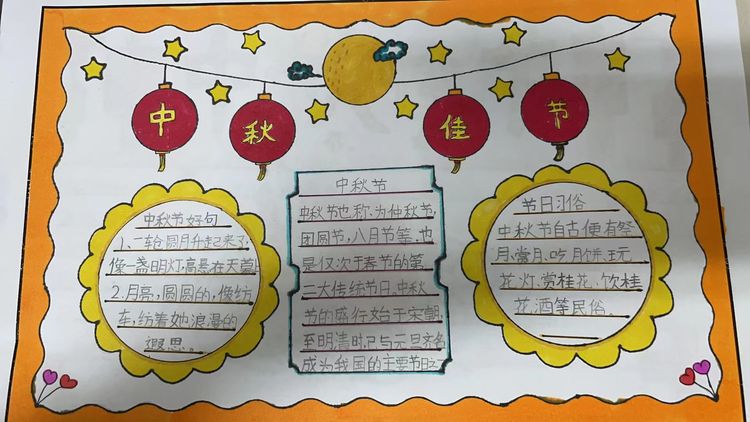 中秋佳节
中秋节好句
1、一轮圆月升起来了,
像一盏明灯,高悬在天幕上
2.月亮,圆圆的,像纺
车,纺着她浪漫的
遐思。
中秋节
中秋节也称:为仲秋节,
团圆节,八月节等,也
是仅次于春节的第
二大传统节日。中秋
节的盛行始于宋朝,
至明清时,已与元旦齐名
成为我国的主要节日之一
节日习俗
中秋节自古便有祭
月、赏月、吃月饼、玩
花灯、赏桂花、饮桂
花酒等民俗。